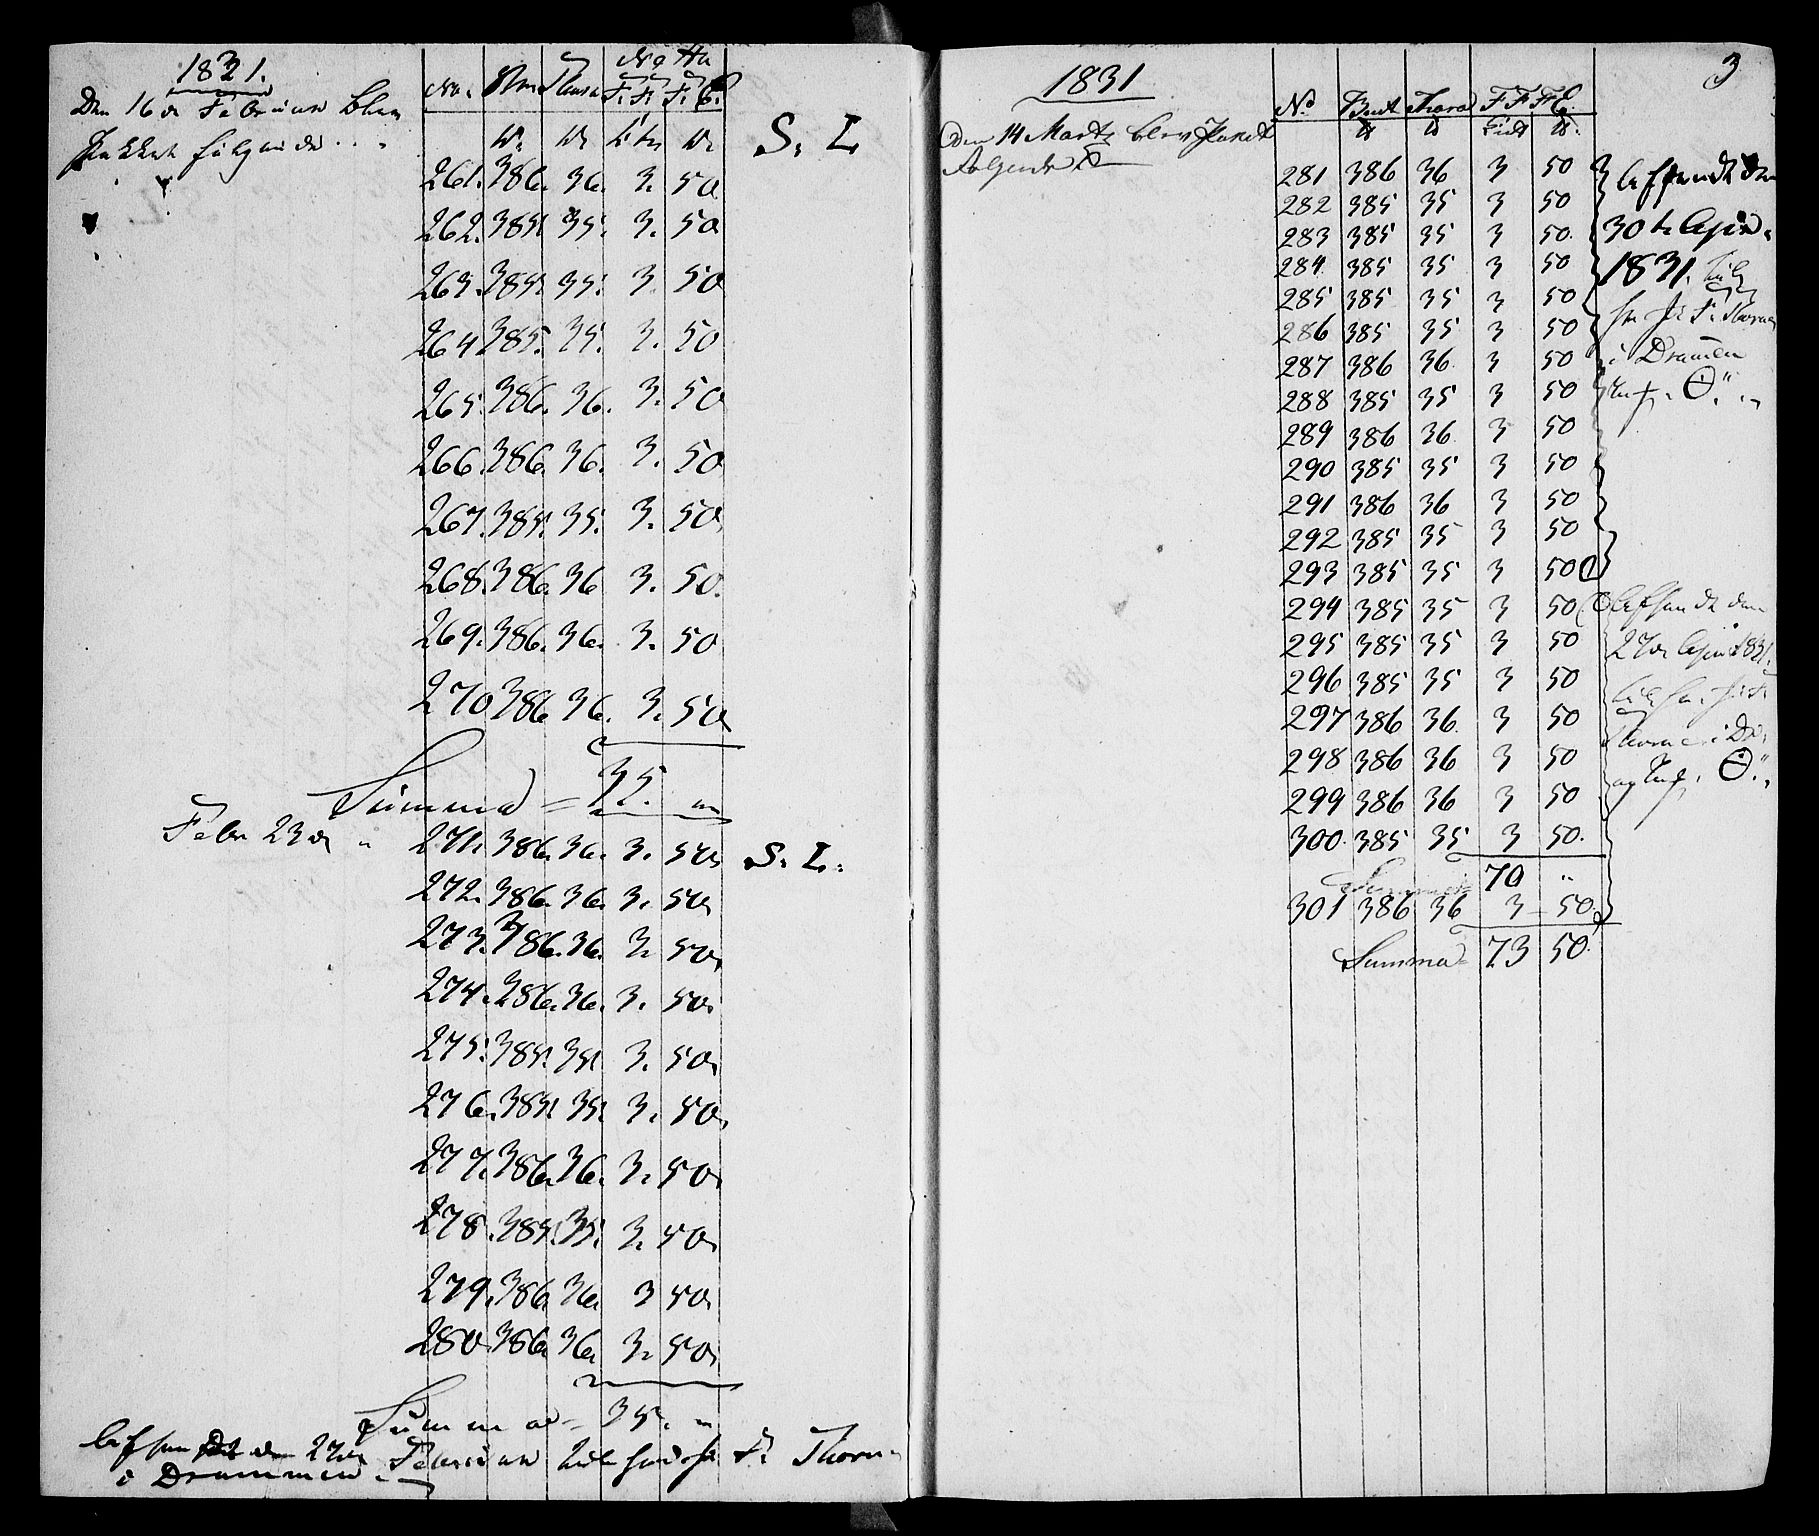 1831.
Den 16de Februar blev
Pakket følgende . . .
No. Bru Thara Netto
F. F. F. C.
℔. ℔ ℔
S. L
261. 386. 36. 3. 50
262. 385. 35. 3. 50
263. 385. 35. 3. 50
264 385. 35. 3. 50
265. 386. 36. 3. 50
266. 386. 36. 3. 50
267. 385. 35. 3. 50.
268. 386. 36 3. 50.
269. 386. 36. 3. 50
270 386 36. 3. 50
Summa = 35. "
Febr 23de " 271. 386. 36. 3. 50. S. L.
272. 386. 36. 3. 50.
273. 386. 36. 3. 50.
274. 386. 36. 3. 50.
275. 385. 35. 3. 50.
276. 385. 35. 3. 50.
277. 386. 36. 3. 50.
278. 385. 35. 3. 50.
279. 386. 36. 3 50.
280. 386. 36. 3. 50.
Summa = 35. "
Afsendt den 27de Februar til F. Thorne
i Drammen
3
1831
Den 14 Marts blev Paket
Følgende
No Brut Thara F F F C.
℔ ℔ ℔.
281 386 36 3 50
282 385 35 3 50
283 385 35 3 50.
284 385 35 3 50
285 385 35 3 50
286 385 35 3 50
287 386 36 3 50
288 385 35 3 50
289 386 36 3 50
290 385 35 3 50
291 386 36 3 50
292 385 35 3 50
293 385 35 3 50
294 385 35 3 50
295 385 35 3 50
296 385 35 3 50
297 386 36 3 50
298 386 36 3 50
299 386 36 3 50
300. 385 35 3 50.
Summa 70 "
301 386 36 3 50.
Summa 73 50.
afsendt den
30te April
1831. til
F. Thorne
i Dramen
Afsendt den
27de April 1831.
til
Thorne i Dr.